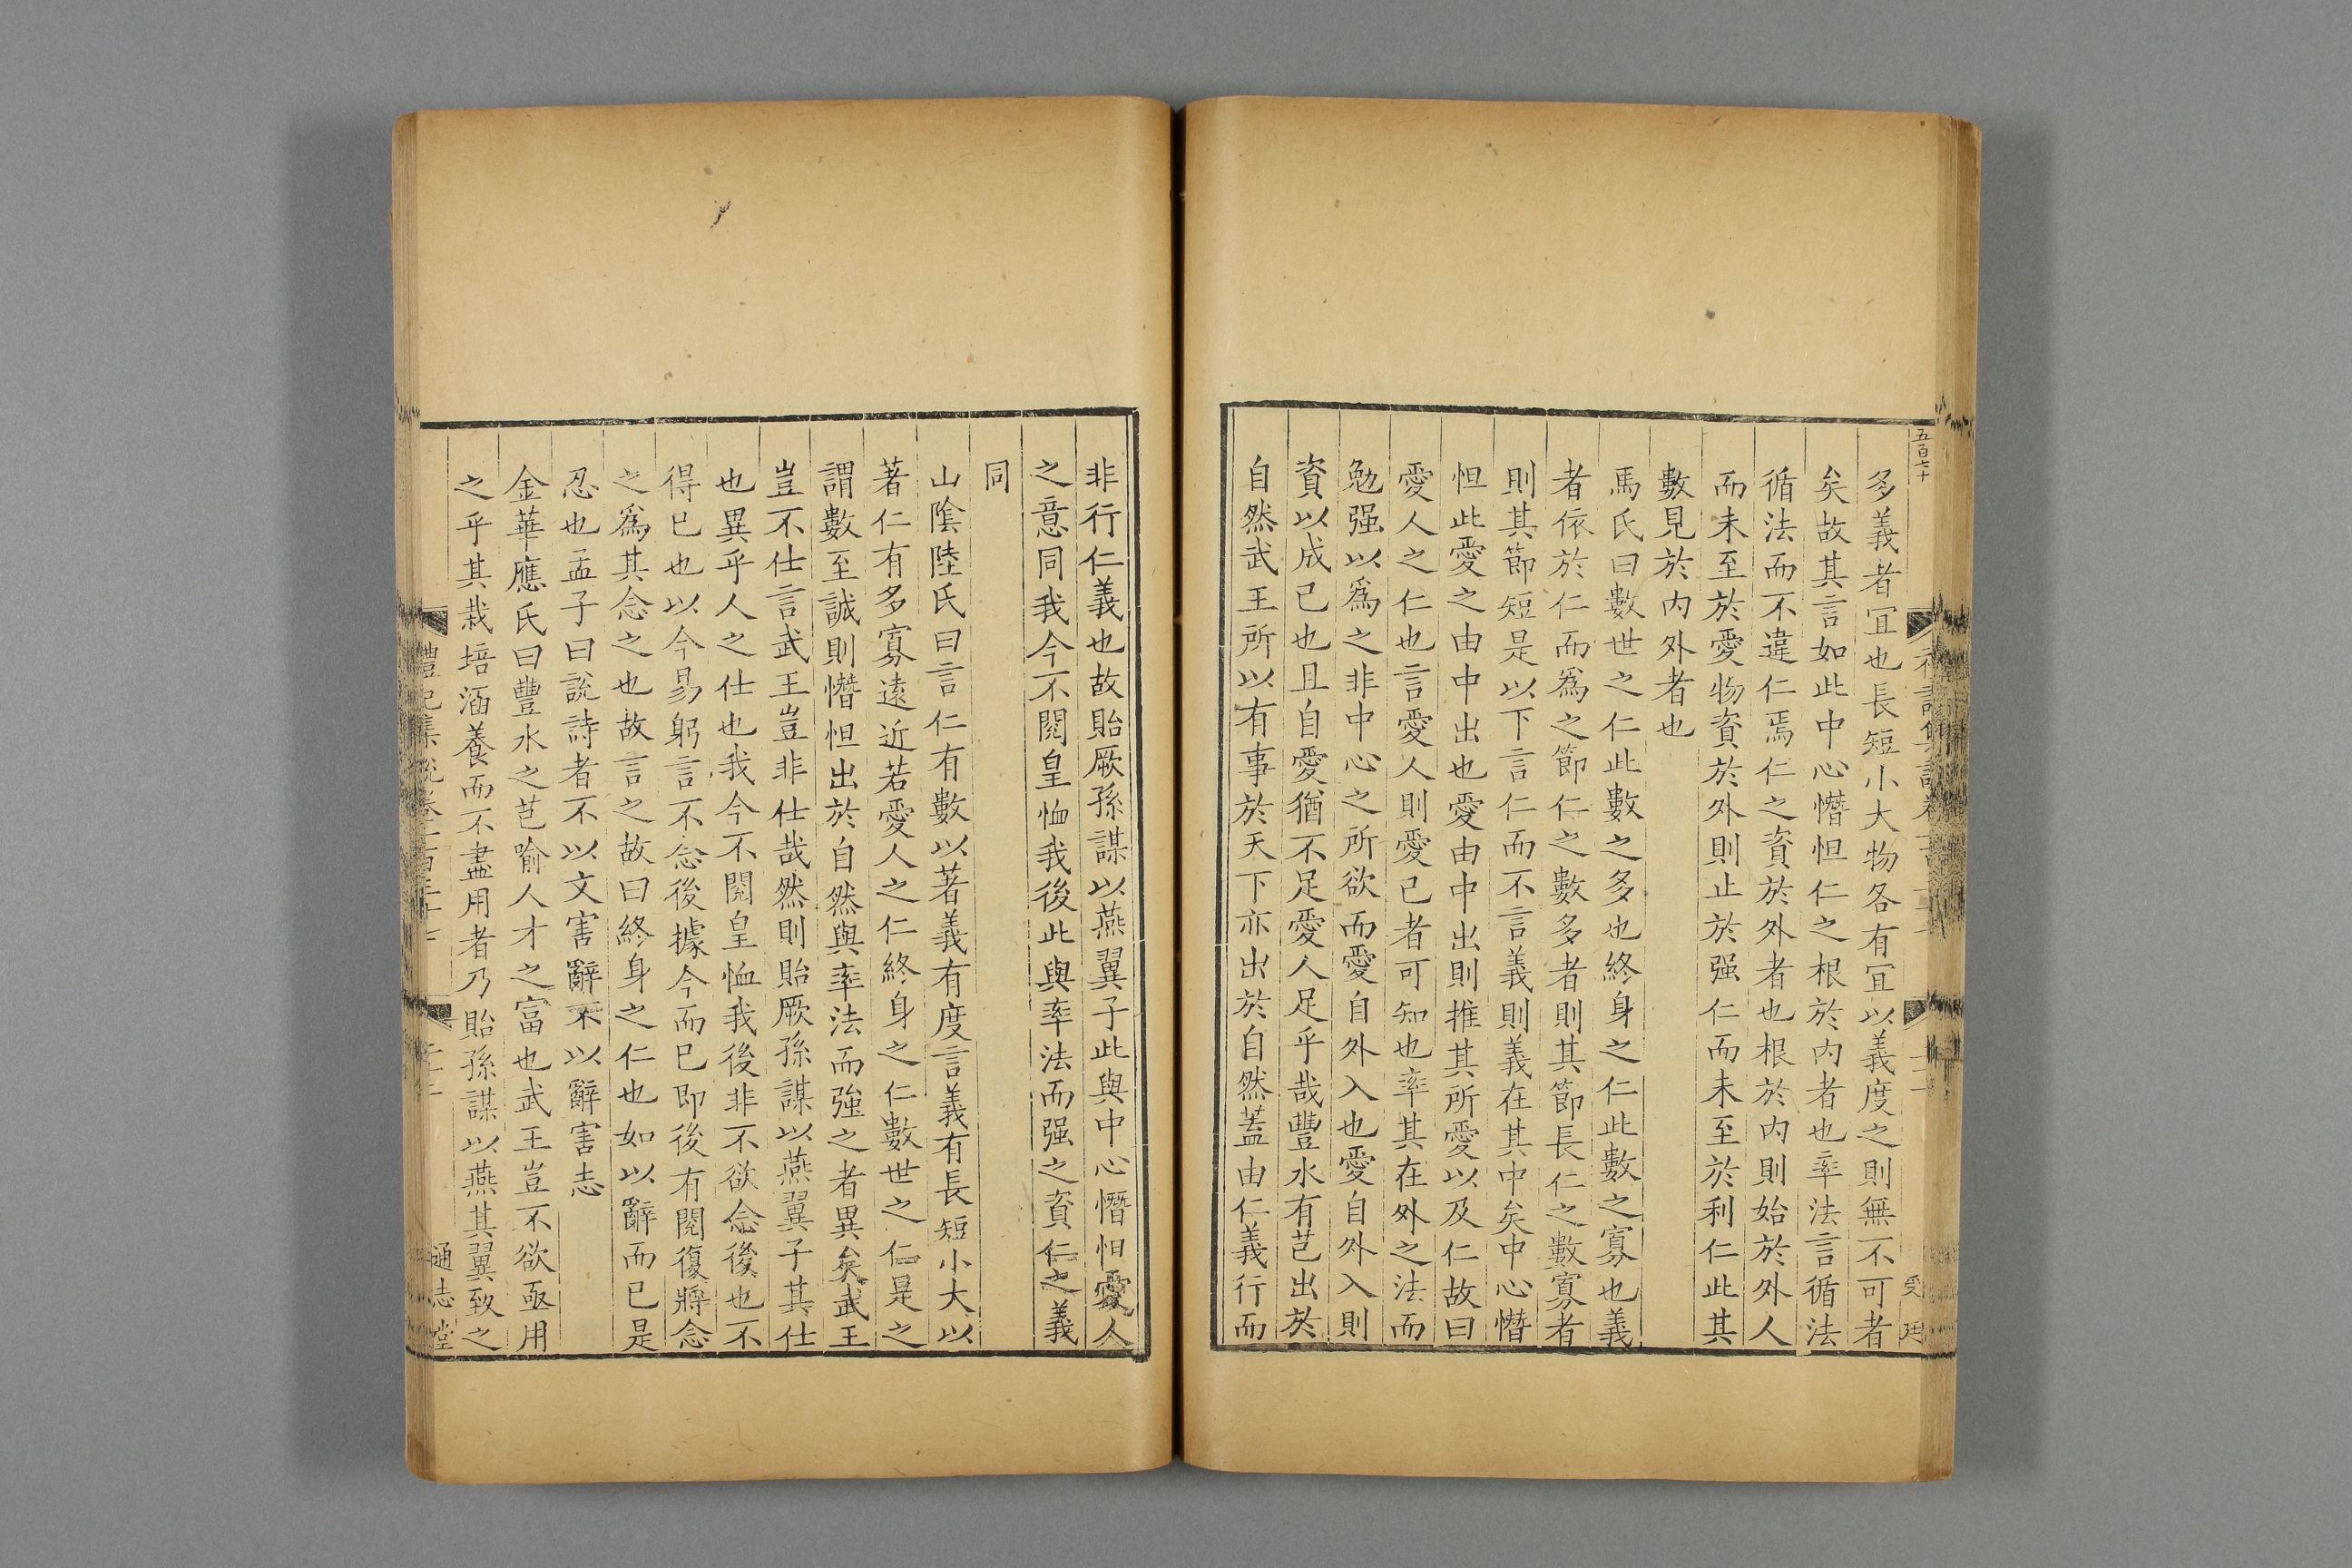 五百七十
多義者宜也長短小大物各有宜以義度之則無不可者
矣故其言如此中心憯怛仁之根於內者也率法言循法
循法而不違仁焉仁之資於外者也根於內則始於外人
而未至於愛物資於外則止於强仁而未至於利仁此其
數見於內外者也
馬氏曰數世之仁此數之多也終身之仁此數之寡也義
者依於仁而爲之節仁之數多者則其節長仁之數寡者
則其節短是以下言仁而不言義則義在其中矣中心憯
怛此愛之由中出也愛由中出則推其所愛以及仁故曰
愛人之仁也言愛人則愛己者可知也率其在外之法而
勉强以爲之非中心之所欲而愛自外入也愛自外入則
資以成己也且自愛猶不足愛人足乎哉豐水有芑出於
自然武王所以有事於天下亦出於自然蓋由仁義行而
非行仁義也故貽厥孫謀以燕翼子此與中心憯怛愛人
之意同我今不閱皇恤我後此與率法而强之資仁之義
同
山陰陸氏曰言仁有數以著義有度言義有長短小大以
著仁有多寡遠近若愛人之仁終身之仁數世之仁是之
謂數至誠則憯怛出於自然與率法而強之者異矣武王
豈不仕言武王豈非仕哉然則貽厥孫謀以燕翼子其仕
也異乎人之仕也我今不閱皇恤我後非不欲念後也不
得已也以今易躬言不念後據今而已即後有閱復將念
之爲其念之也故言之故曰終身之仁也如以辭而已是
忍也孟子曰說詩者不以文害辭不以辭害志
金華應氏曰豐水之芑喻人才之富也武王豈不欲亟用
之乎其栽培涵養而不盡用者乃貽孫謀以燕其翼致之
禮記集說卷一百三十
通志堂